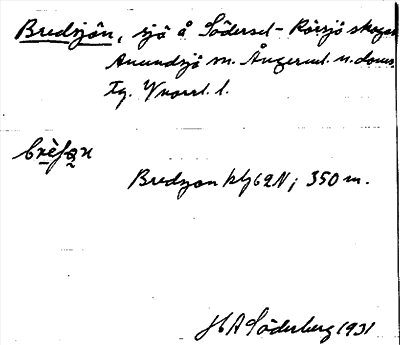 Bredsjön, sjö å Södersel-Rörsjö skogen
Anundsjö m. Ångerml. n. doms.
Tg. Vnorrl. l.
brèʃǫn
Bredsjon kbl 62N; 350 m.
H A Söderberg 1931